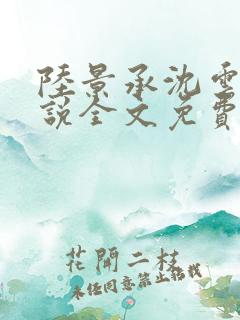 陸景承沈雲
說全文免費
花開二枝
未經同意禁止轉載